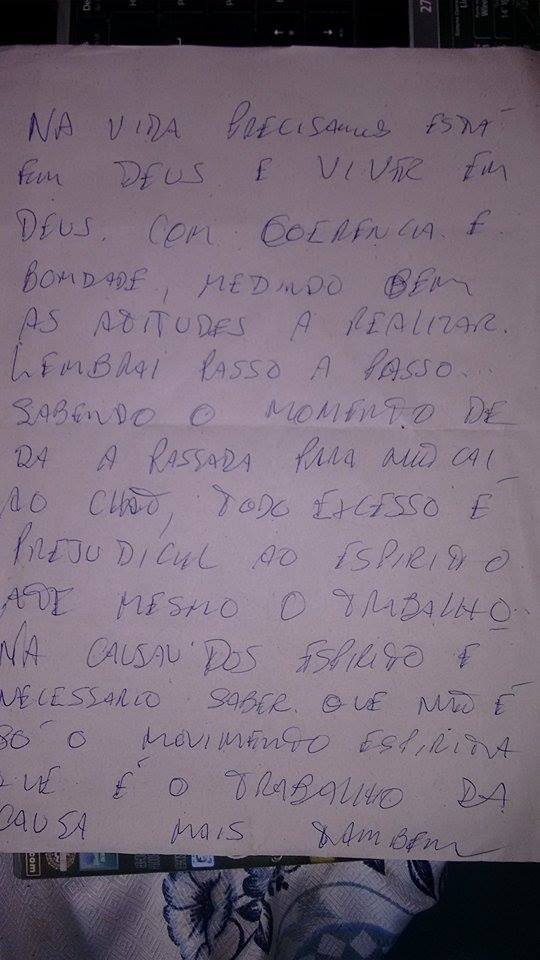 NA VIDA PRECISAMOS ESTÁ
EM DEUS E VIVER EM
DEUS. COM COERENCIA E
BONDADE, MEDINDO BEM
AS ATITUDES A REALIZAR.
LEMBRAI PASSO A PASSO...
SABENDO O MOMENTO DE
DA A PASSADA PARA NÃO CAI
AO CHÃO, TODO EXCESSO É
PREJUDICIAL AO ESPIRITO
ATE MESMO O TRABALHO
NA CAUSA DOS ESPIRITO E
NECESSARIO SABER QUE NÃO É
SÓ O MOVIMENTO ESPIRITA
QUE É O TRABALHO DA
CAUSA MAIS TAMBEM
27
.com